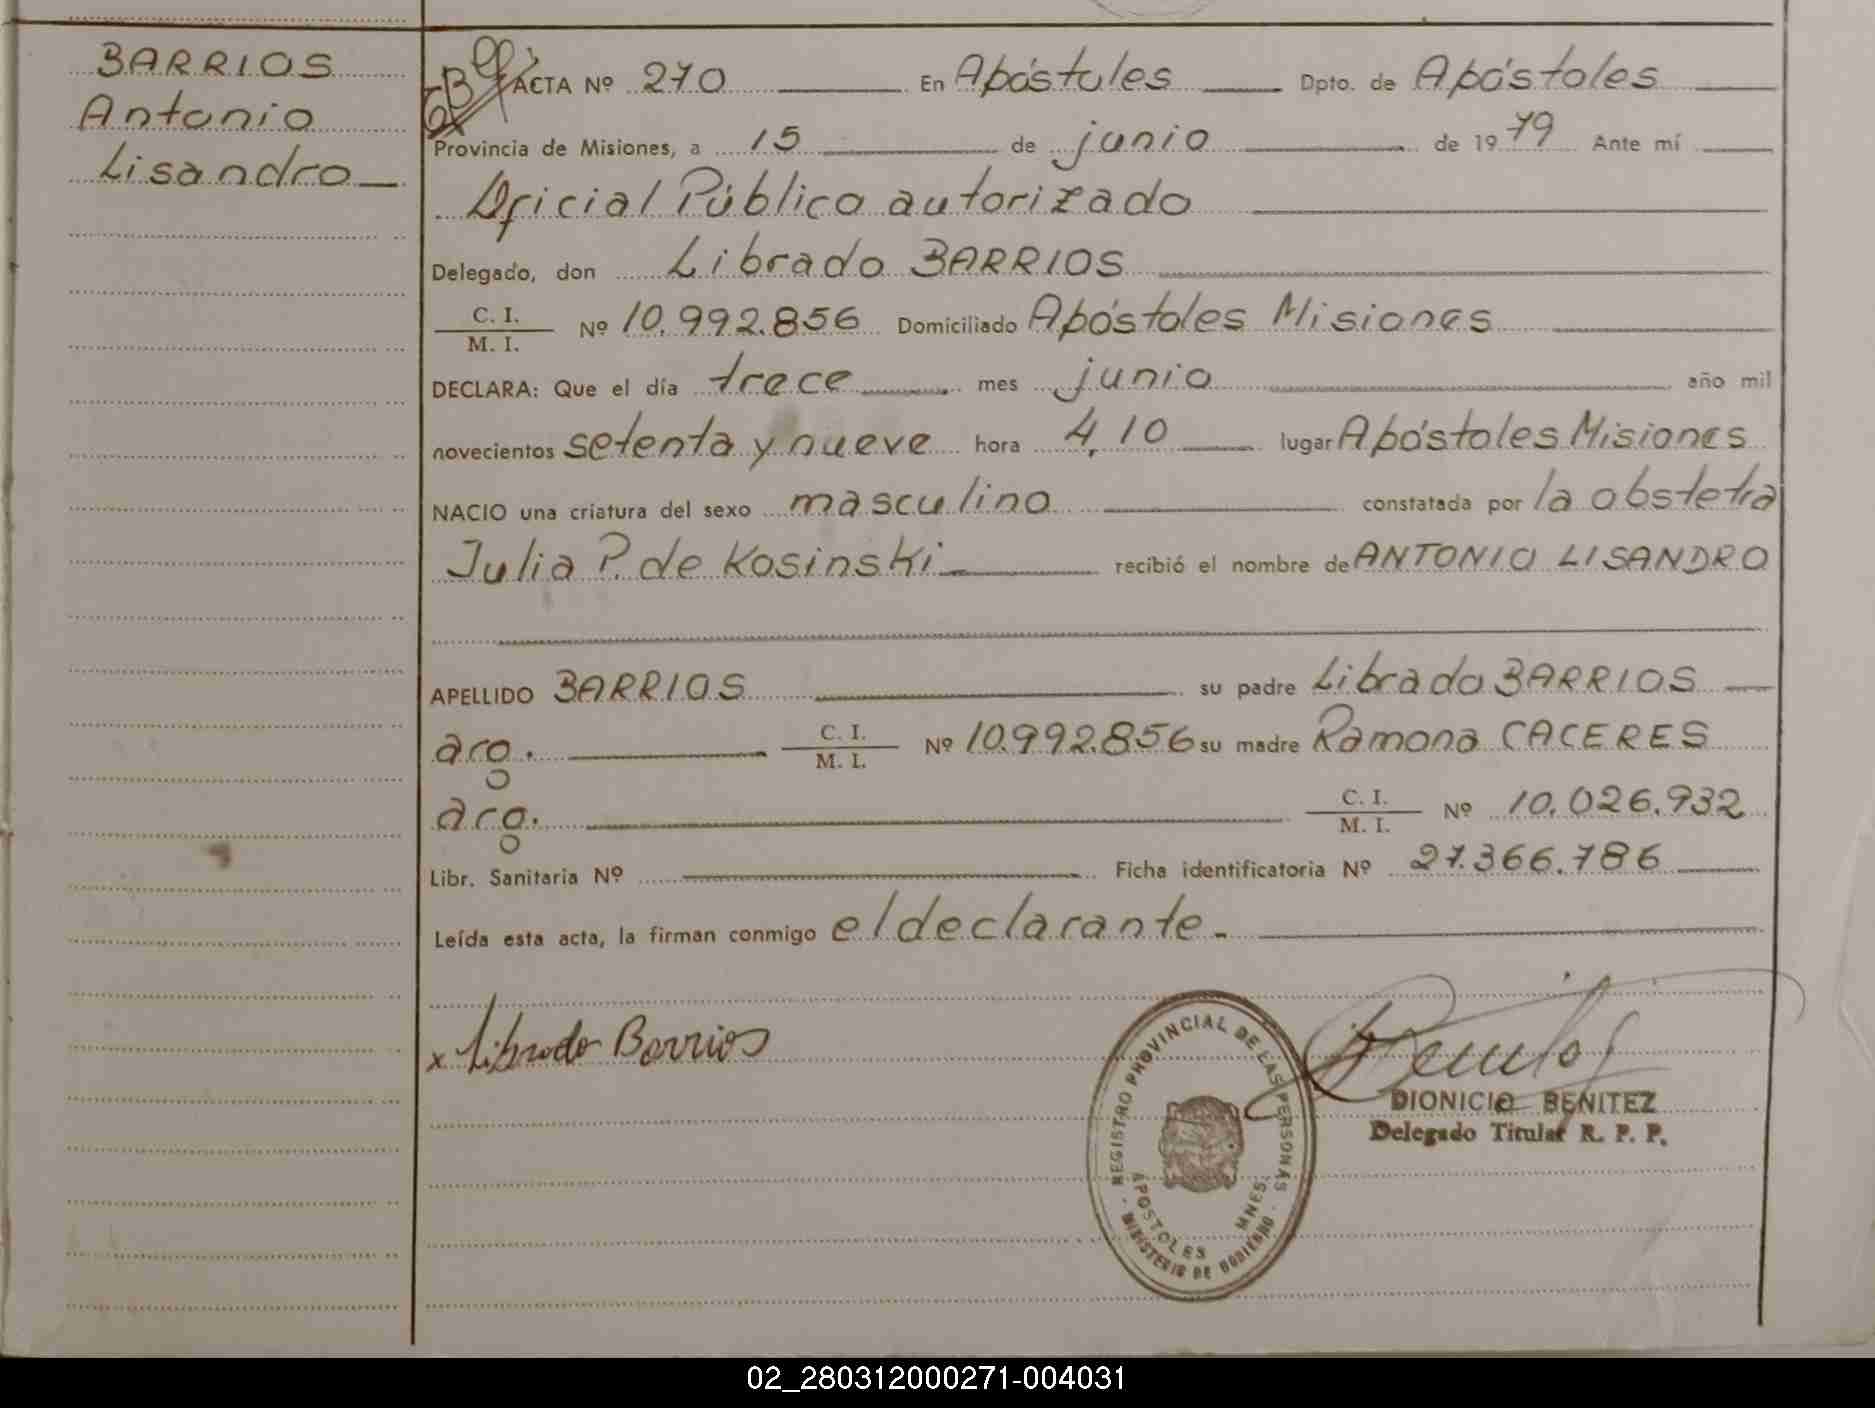 BARRIOS
Antonio
Lisandro
ACTA Nº 270 En Apóstoles Dpto. de Apóstoles
Provincia de Misiones, a 15 de junio de 1979 Ante mí
Oficial Público autorizado
Delegado, don Librado BARRIOS
C. I.
M. I. Nº 10.992.856 Domiciliado Apóstoles Misiones
DECLARA: Que el día trece mes junio año mil
novecientos setenta y nueve hora 4,10 lugar Apóstoles Misiones
NACIO una criatura del sexo masculino constatada por la obstetra
Julia P. de Kosinski recibió el nombre de ANTONIO LISANDRO
APELLIDO BARRIOS su padre Librado BARRIOS
arg. C. I.
M. I. Nº 10.992.856 su madre Ramona CACERES
arg. C. I.
M. I. Nº 10.026.932
Libr. Sanitaria Nº Ficha identificatoria Nº 27.366.786
Leída esta acta, la firman conmigo el declarante.
x Librado Barrios
REGISTRO PROVINCIAL DE LAS PERSONAS
APOSTOLES MNES.
MINISTERIO DE GOBIERNO
DIONICIO BENITEZ
Delegado Titular R. P. P.
02_280312000271-004031